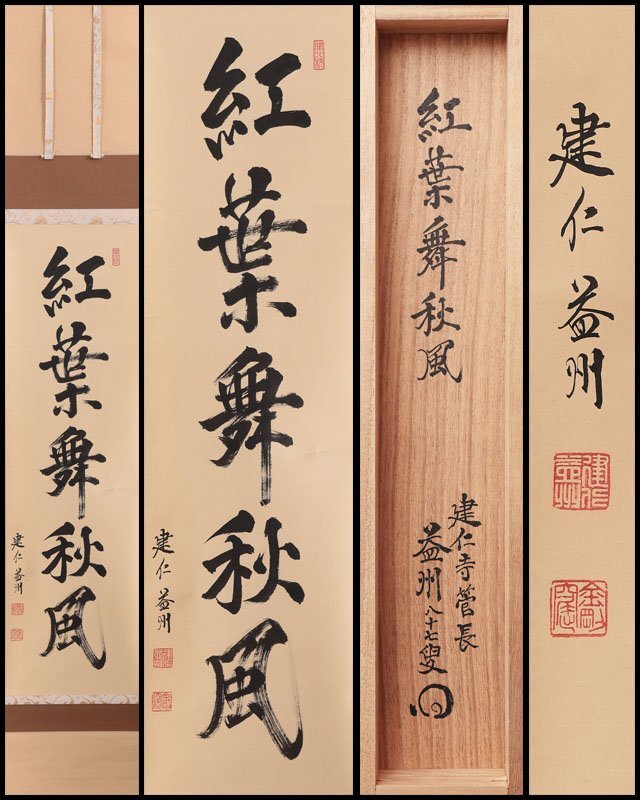 紅葉舞秋風
建仁 益州
紅葉舞秋風
建仁 益州
紅葉舞秋風
建仁寺管長
益州 八十七叟
建仁 益州
建仁
益州